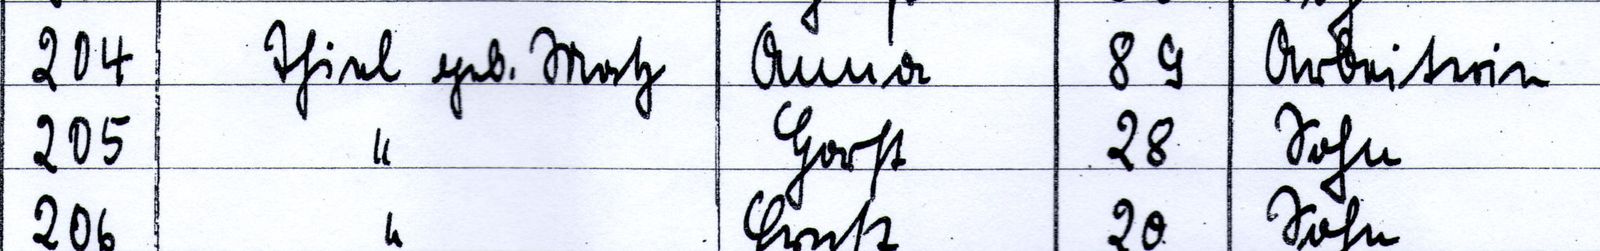 204 Thiel geb. Matz Anna 89 Arbeiterin
205 " Horst 28 Sohn
206 " Ernst 20 Sohn